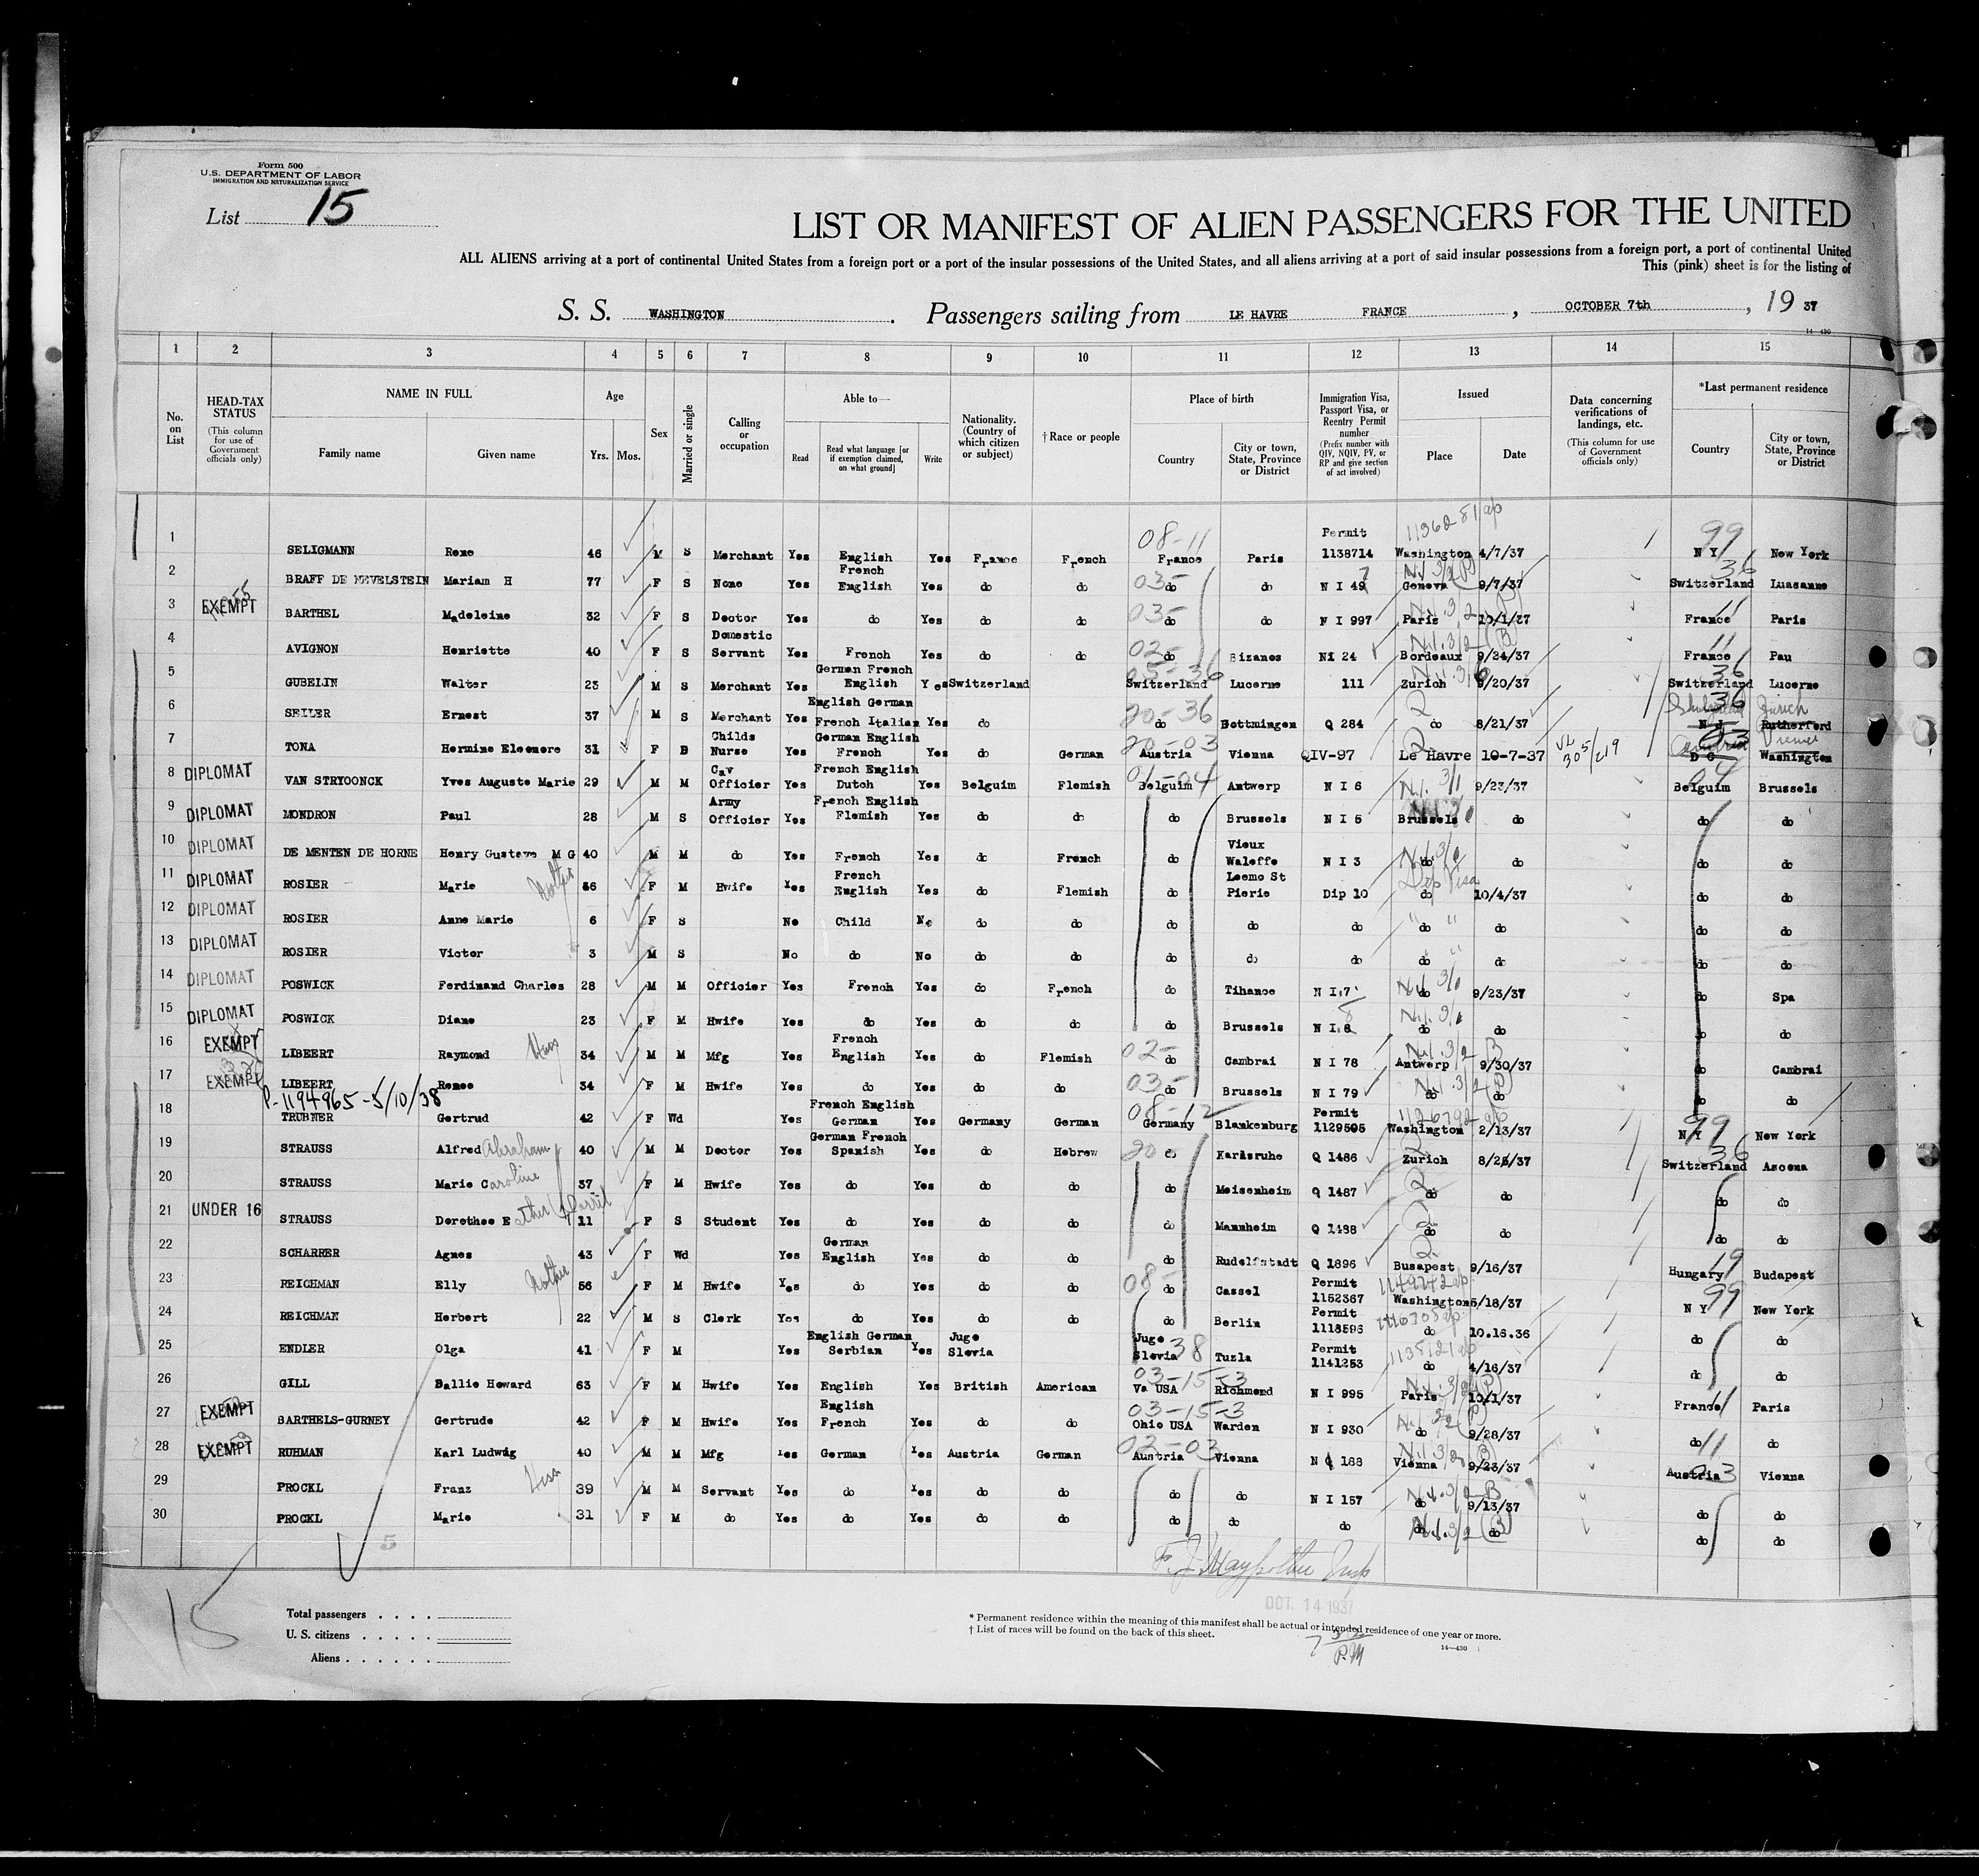 Form 500
U.S. DEPARTMENT OF LABOR
IMMIGRATION AND NATURALIZATION SERVICE
List 15
LIST OR MANIFEST OF ALIEN PASSENGERS FOR THE UNITED
ALL ALIENS arriving at a port of continental United States from a foreign port or a port of the insular possessions of the United States, and all aliens arriving at a port of said insular possessions from a foreign port, a port of continental United
This (pink) sheet is for the listing of
S. S. WASHINGTON . Passengers sailing from LE HAVRE FRANCE , OCTOBER 7th , 19 37
14-430
1 2 3 4 5 6 7 8 9 10 11 12 13 14 15
No. on List
HEAD-TAX STATUS (This column for use of Government officials only)
NAME IN FULL Family name Given name
Age Yrs. Mos.
Sex
Married or single
Calling or occupation
Able to— Read Read what language [or if exemption claimed, on what ground] Write
Nationality. (Country of which citizen or subject)
†Race or people
Place of birth Country City or town, State, Province or District
Immigration Visa, Passport Visa, or Reentry Permit number (Prefix number with QIV, NQIV, PV, or RP and give section of act involved)
Issued Place Date
Data concerning verifications of landings, etc. (This column for use of Government officials only)
*Last permanent residence Country City or town, State, Province or District
1 SELIGMANN Rene 46 M S Merchant Yes English Yes France French 08-11 France Paris Permit 1138714 Washington 4/7/37 99 N Y New York
2 BRAFF DE MEVELSTEIN Mariam H 77 F S None Yes French English Yes do do 03- do do N I 49 Geneva 9/7/37 36 Switzerland Luasanne
3 EXEMPT BARTHEL Madeleine 32 F S Doctor Yes do Yes do do 03- do do N I 997 Paris 10/1/37 11 France Paris
4 AVIGNON Henriette 40 F S Domestic Servant Yes French Yes do do 02- do Bizanos NI 24 Bordeaux 9/24/37 11 France Pau
5 GUBELIN Walter 23 M S Merchant Yes German French English Yes Switzerland 03-36 Switzerland Lucerne 111 Zurich 9/20/37 36 Switzerland Lucerne
6 SEILER Ernest 37 M S Merchant Yes English German French Italian Yes do 20-36 do Bottmingen Q 284 do 8/21/37 36 N J Rutherford Zurich
7 TONA Hermine Eleonore 31 F D Childs Nurse Yes German English French Yes do German 20-03 Austria Vienna QIV-97 Le Havre 10-7-37 305/219 Austria D C Washington
8 DIPLOMAT VAN STRYOONCK Yves Auguste Marie 29 M M Cav Officier Yes French English Dutch Yes Belguim Flemish 01-04 Belguim Antwerp N I 6 N.I. 3/1 9/23/37 04 Belguim Brussels
9 DIPLOMAT MONDRON Paul 28 M S Army Officier Yes French English Flemish Yes do do do Brussels N I 5 Brussels do do do
10 DIPLOMAT DE MENTEN DE HORNE Henry Gustave M G 40 M M do Yes French Yes do French do Vieux Waleffe N I 3 do do do do
11 DIPLOMAT ROSIER Marie Mother 56 F M Hwife Yes French English Yes do Flemish do Leemo St Pierie Dip 10 do Dip Visa 10/4/37 do do
12 DIPLOMAT ROSIER Anne Marie 6 F S No Child No do do do do do do " " do do do
13 DIPLOMAT ROSIER Victor 3 M S No do No do do do do do do " do do do
14 DIPLOMAT POSWICK Ferdinand Charles 28 M M Officier Yes French Yes do French do Tihance N I 7 do 9/23/37 do Spa
15 DIPLOMAT POSWICK Diane 23 F M Hwife Yes do Yes do do do Brussels N I 8 do do do do
16 EXEMPT LIBEERT Raymond 34 M M Mfg Yes French English Yes do Flemish 02- do Cambrai N I 78 Antwerp 9/30/37 do Cambrai
17 EXEMPT LIBEERT Renee 34 F M Hwife Yes do Yes do do 03- do Brussels N I 79 do do do do
P-1194965-5/10/38
18 TRUBNER Gertrud 42 F Wd Yes French English German Yes Germany German 08-12 Germany Blankenburg Permit 1129505 Washington 2/13/37 99 N Y New York
19 STRAUSS Alfred Abraham 40 M M Doctor Yes German French Spanish Yes do Hebrew 20 do Karlsruhe Q 1486 Zurich 8/25/37 36 Switzerland Ascona
20 STRAUSS Marie Caroline 37 F M Hwife Yes do Yes do do do Meisenheim Q 1487 do do do do
21 UNDER 16 STRAUSS Dorothee E 11 F S Student Yes do Yes do do do Mannheim Q 1488 do do do do
22 SCHARRER Agnes 43 F Wd Yes German English Yes do do do Rudolfstadt Q 1896 Busapest 9/16/37 19 Hungary Budapest
23 REICHMAN Elly Mother 56 F M Hwife Yes do Yes do do 08- do Cassel Permit 1152367 Washington 5/18/37 99 N Y New York
24 REICHMAN Herbert 22 M S Clerk Yes do Yes do do do Berlin Permit 1118596 do 10.16.36 do do
25 ENDLER Olga 41 F M Yes English German Serbian Yes Jugo Slavia Jugo Slavia 38 Tuzla Permit 1141253 do 4/16/37 do do
26 GILL Sallie Howard 63 F M Hwife Yes English Yes British American 03-15-3 Va USA Richmond N I 995 Paris 10/1/37 11 France Paris
27 EXEMPT BARTHELS-GURNEY Gertrude 42 F M Hwife Yes English French Yes do do 03-15-3 Ohio USA Warden N I 930 do 9/28/37 11 do do
28 EXEMPT RUHMAN Karl Ludwig 40 M M Mfg Yes German Yes Austria German 02-03 Austria Vienna N I 188 Vienna 9/23/37 03 Austria Vienna
29 PROCKL Franz 39 M M Servant Yes do Yes do do do do N I 157 do 9/13/37 do do
30 PROCKL Marie 31 F M do Yes do Yes do do do do do do do do do
5
15
OCT. 14 1937
Total passengers
U. S. citizens
Aliens
* Permanent residence within the meaning of this manifest shall be actual or intended residence of one year or more.
† List of races will be found on the back of this sheet.
14-430
P.M